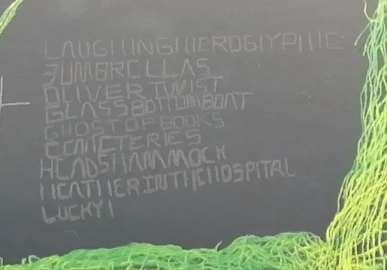 LAUGHINGHIEROGLYPHIC
3UMBRELLAS
OLIVER TWIST
GLASSBOTTOMBOAT
GHOST OF BOOKS
CEMETERIES
HEADSHAMMOCK
HEATHERINTHEHOSPITAL
LUCKY1